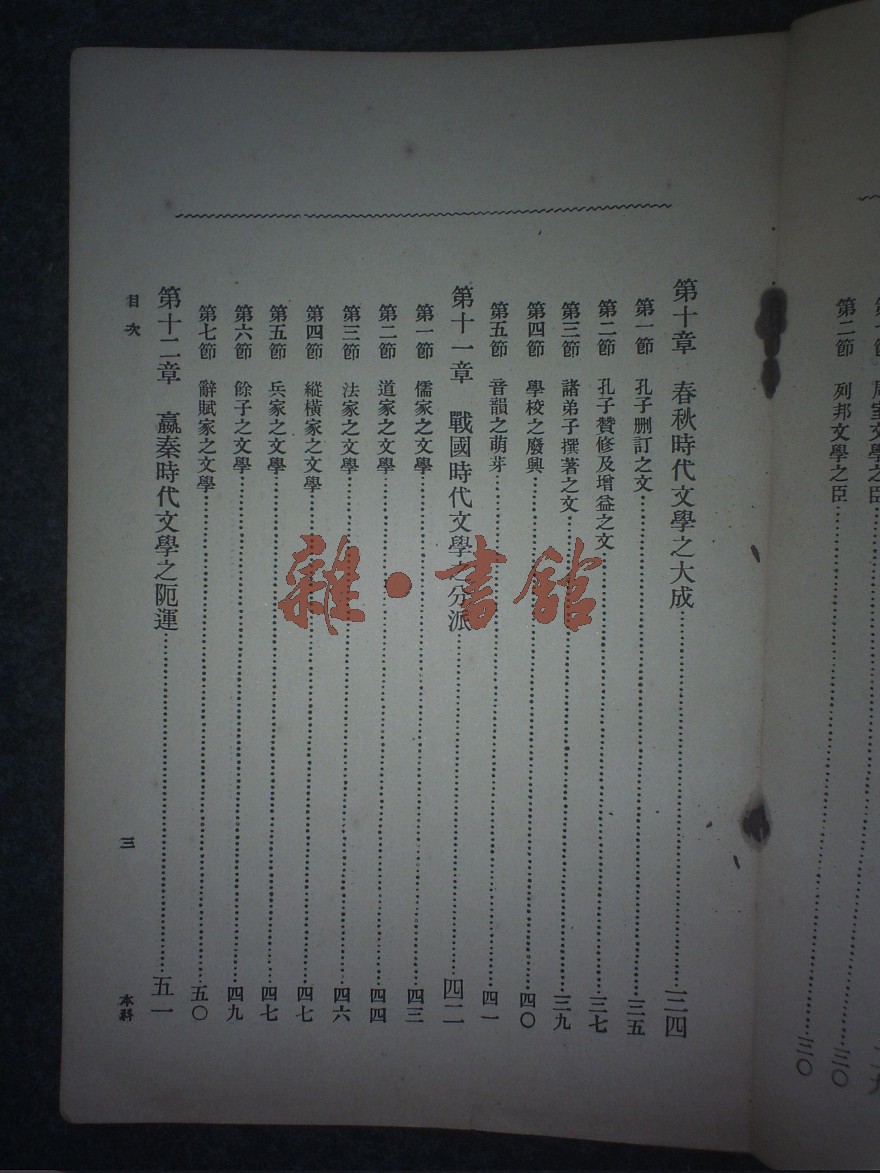 第二節　列邦文學之臣……三〇
第十章　春秋時代文學之大成……三四
第一節　孔子刪訂之文……三五
第二節　孔子贊修及增益之文……三七
第三節　諸弟子撰著之文……三九
第四節　學校之廢興……四〇
第五節　音韻之萌芽……四一
第十一章　戰國時代文學之分派……四二
第一節　儒家之文學……四三
第二節　道家之文學……四四
第三節　法家之文學……四六
第四節　縱橫家之文學……四七
第五節　兵家之文學……四七
第六節　餘子之文學……四九
第七節　辭賦家之文學……五〇
第十二章　嬴秦時代文學之阨運……五一
目次　三　本科
雜·書館